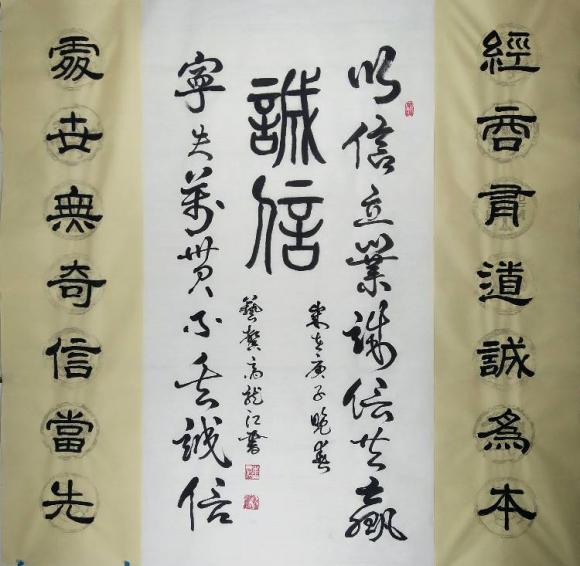 經商有道誠爲本
以信立業誠信共贏
誠信
歲在庚子晚春
高龍江書
寧失萬貫不失誠信
處世無奇信當先